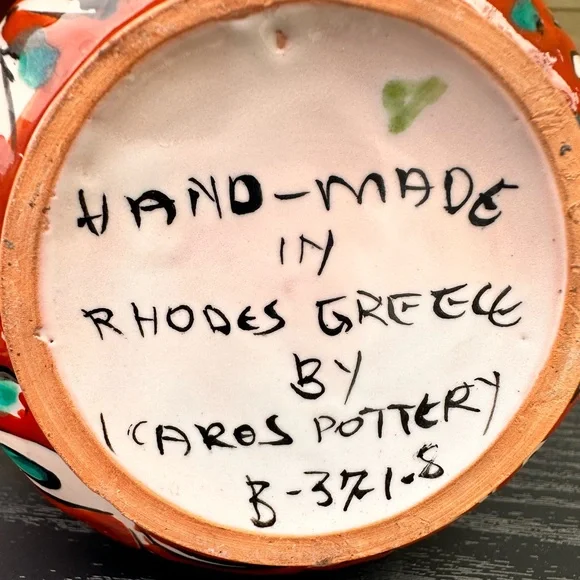 HAND-MADE
IN
RHODES GREECE
BY
ICAROS POTTERY
B-371-8